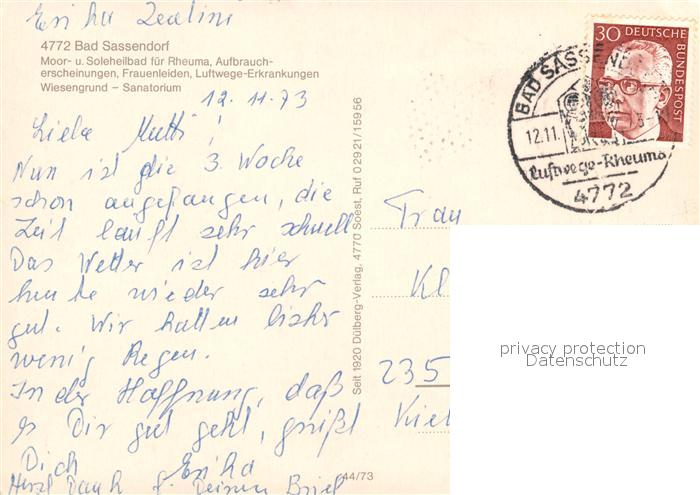 Erika
4772 Bad Sassendorf
Moor- u. Soleheilbad für Rheuma, Aufbrauch-
erscheinungen, Frauenleiden, Luftwege-Erkrankungen
Wiesengrund – Sanatorium
12.11.73
Liebe Mutti!
Nun ist die 3. Woche
schon angefangen, die
Zeit läuft sehr schnell
Das Wetter ist hier
heute wieder sehr
gut. Wir hatten bisher
wenig Regen.
In der Hoffnung, daß
es Dir gut geht, grüßt
Dich Erika
Herzl. Dank f. Deinen Brief
Seit 1920 Dülberg-Verlag, 4770 Soest, Ruf 0 29 21/1 59 56
44/73
30 DEUTSCHE
BUNDESPOST
BAD SASSEND
12.11.
Luftwege-Rheuma
4772
Frau
Kl
235
Kiel
privacy protection
Datenschutz